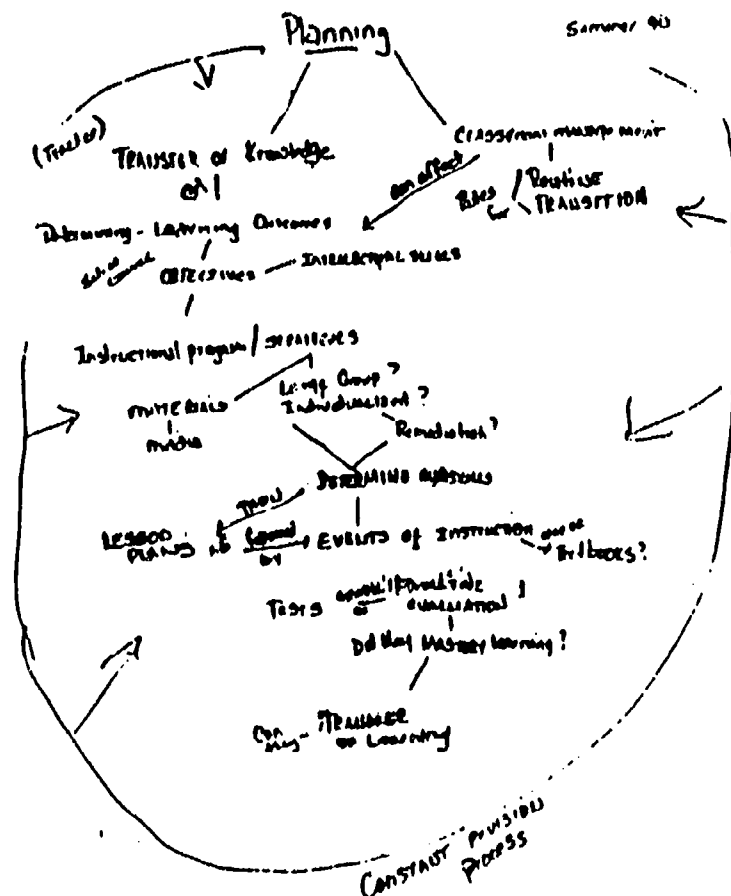 Planning
Summer 90
(Teacher)
TRANSFER of Knowledge
Classroom management
can affect
Rules for
Routine
TRANSITION
Determining - Learning Outcomes
OBJECTIVES - INTELLECTUAL SKILLS
Instructional program / strategies
MATERIALS
media
Large Group?
Individualized?
Remediation?
DETERMINE
THEN
LESSON PLANS
by
EVENTS OF INSTRUCTION
Textbooks?
Tests
EVALUATION
Did they MASTERY learning?
Can they - TRANSFER
of Learning
CONSTANT REVISION
PROCESS